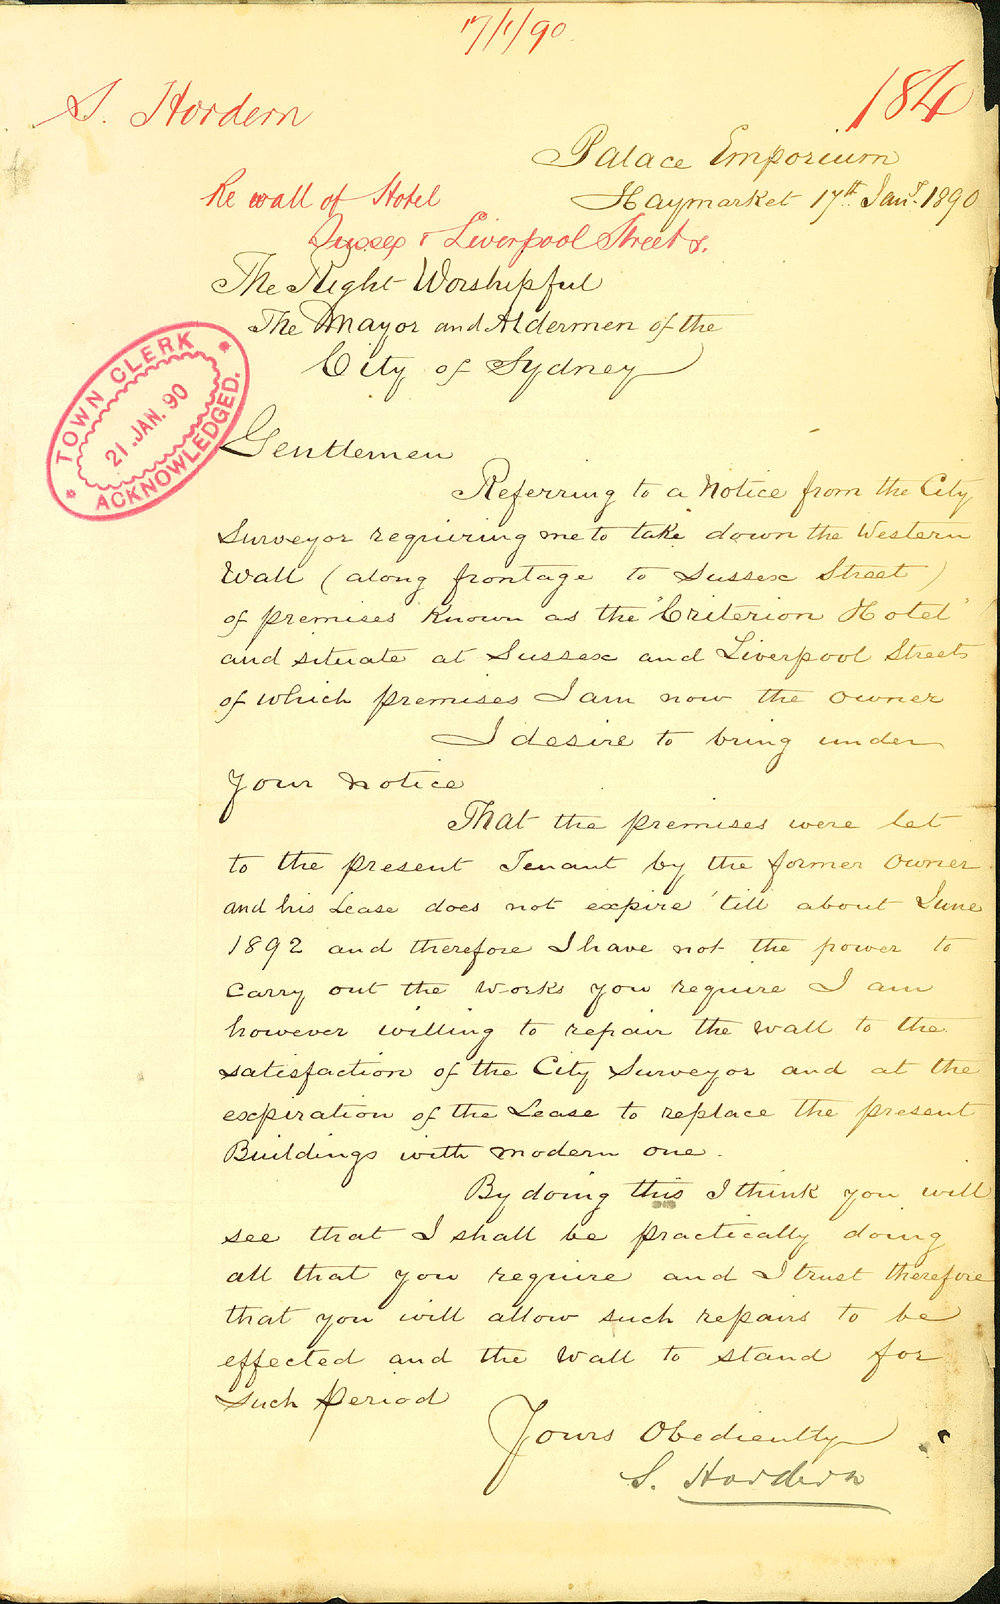 17/1/90
184
S. Hordern
Palace Emporium
Haymarket 17th Jany. 1890
Re wall of Hotel
Sussex & Liverpool Streets.
The Right Worshipful
The Mayor and Aldermen of the
City of Sydney
TOWN CLERK
21 JAN. 90
ACKNOWLEDGED.
Gentlemen
Referring to a Notice from the City
Surveyor requiring me to take down the Western
Wall (along frontage to Sussex Street)
of premises known as the "Criterion Hotel"
and situate at Sussex and Liverpool Streets
of which premises I am now the owner
I desire to bring under
Your Notice
That the premises were let
to the present Tenant by the former Owner
and his Lease does not expire 'till about June
1892 and therefore I have not the power to
carry out the works you require I am
however willing to repair the wall to the
satisfaction of the City Surveyor and at the
expiration of the Lease to replace the present
Buildings with modern one.
By doing this I think you will
see that I shall be practically doing
all that you require and I trust therefore
that you will allow such repairs to be
effected and the Wall to stand for
such period
Yours Obediently
S. Hordern